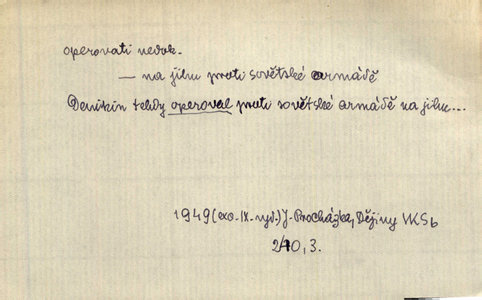 operovati nedok.
— na jihu proti sovětské armádě
Denikin tehdy operoval proti sovětské armádě na jihu...
1949 (exc. IX. vyd.) J. Procházka, Dějiny VKSb
210, 3.